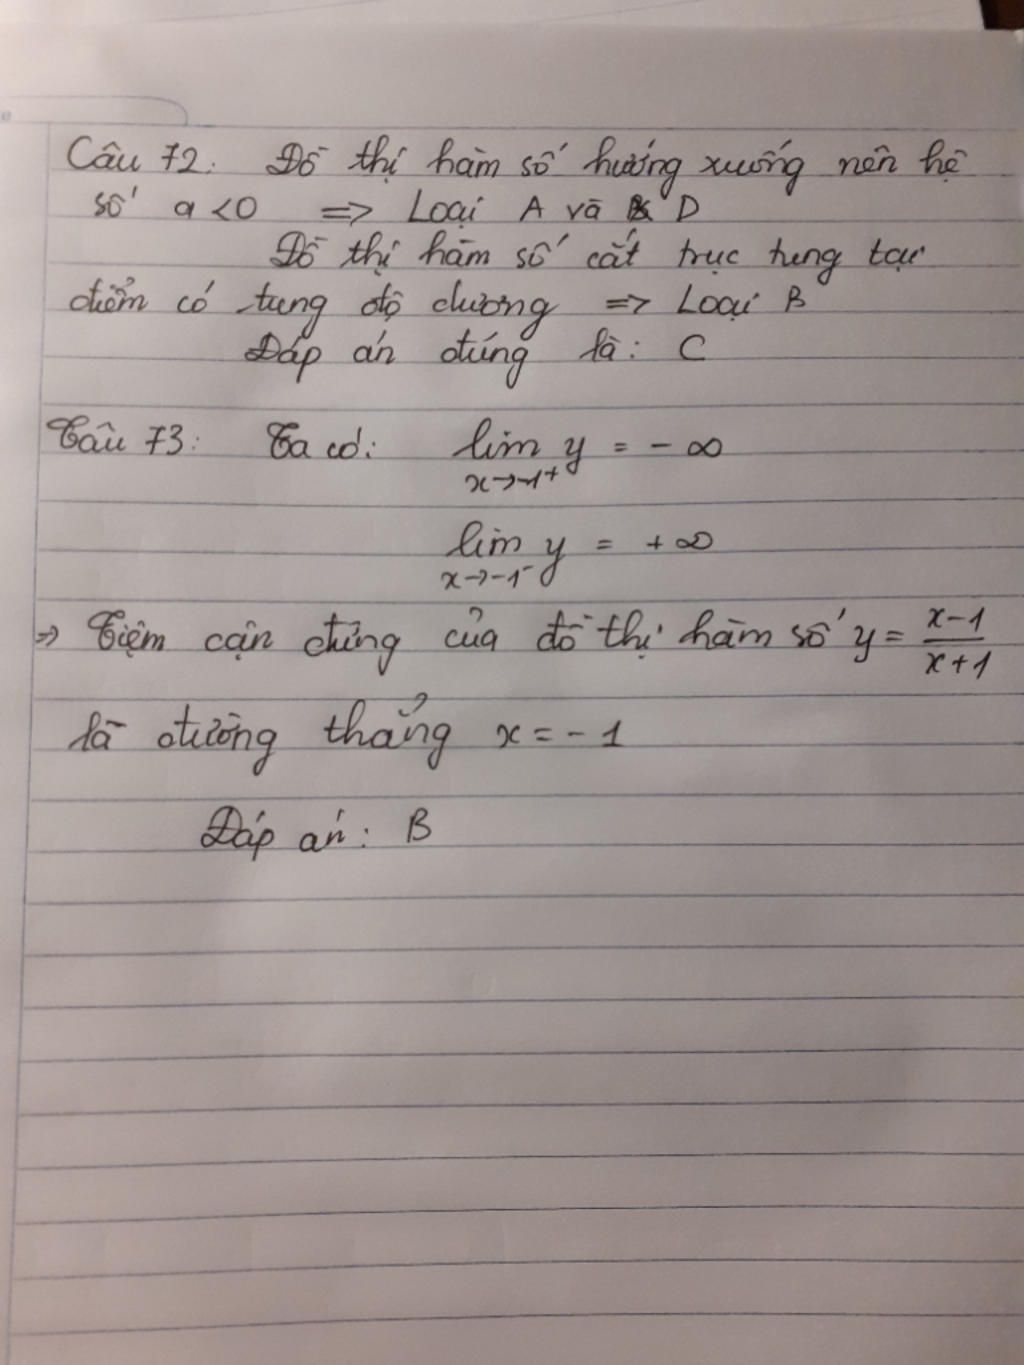 Câu 72: Đồ thị hàm số hướng xuống nên hệ
số a < 0 => Loại A và D
Đồ thị hàm số cắt trục tung tại
điểm có tung độ dương => Loại B
Đáp án đúng là: C
Câu 73: Ta có: lim y = - ∞
x→-1⁺
lim y = + ∞
x→-1⁻
=> Tiệm cận đứng của đồ thị hàm số y = (x-1)/(x+1)
là đường thẳng x = - 1
Đáp án: B